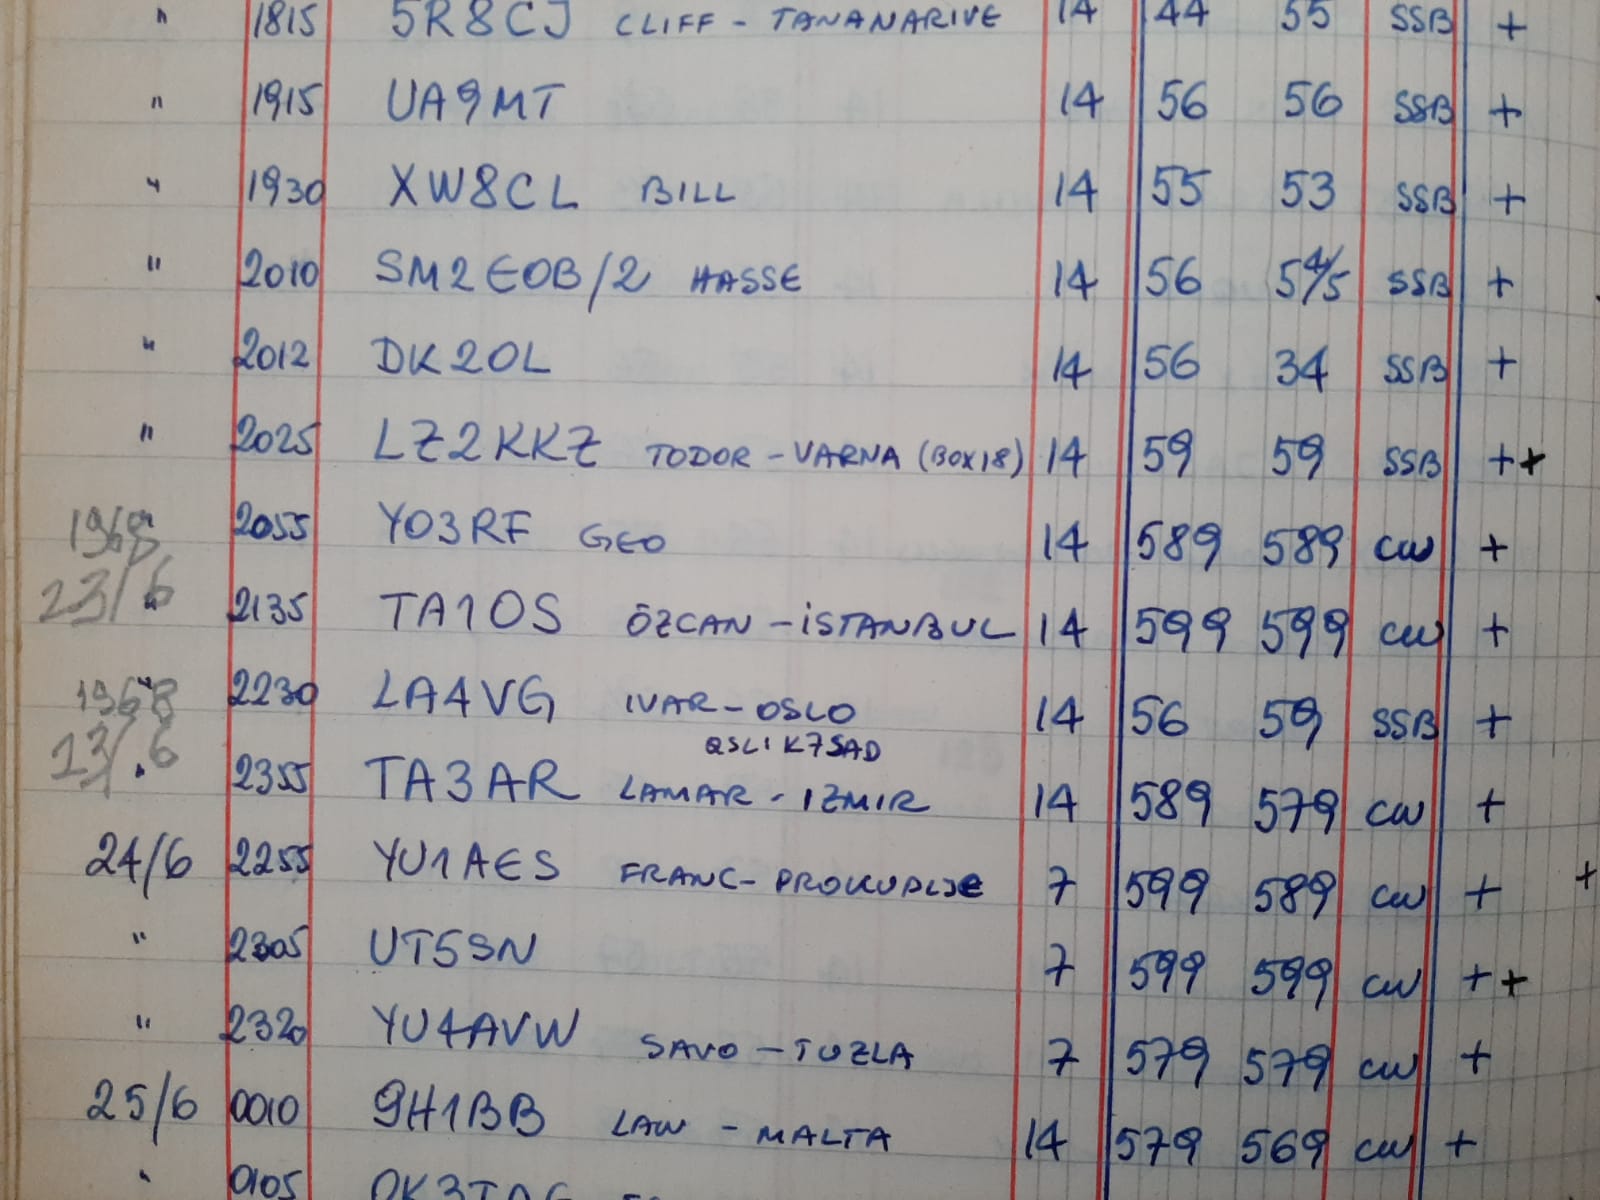 " 1815 5R8CJ CLIFF - TANANARIVE 14 44 55 SSB +
" 1915 UA9MT 14 56 56 SSB +
" 1930 XW8CL BILL 14 55 53 SSB +
" 2010 SM2EOB/2 HASSE 14 56 54/5 SSB +
" 2012 DK2OL 14 56 34 SSB +
" 2025 LZ2KKZ TODOR - VARNA (BOX18) 14 59 59 SSB ++
1968 2055 YO3RF GEO 14 589 589 CW +
23/6 " 2135 TA1OS ÖZCAN - İSTANBUL 14 599 599 CW +
1968 " 2230 LA4VG IVAR - OSLO 14 56 59 SSB +
QSL: K7SAD
23/6 " 2355 TA3AR LAMAR - IZMIR 14 589 579 CW +
24/6 2255 YU1AES FRANC - PROKUPLJE 7 599 589 CW + +
" 2305 UT5SN 7 599 599 CW ++
" 2320 YU4AVW SAVO - TUZLA 7 579 579 CW +
25/6 0010 9H1BB LAW - MALTA 14 579 569 CW +
" 0105